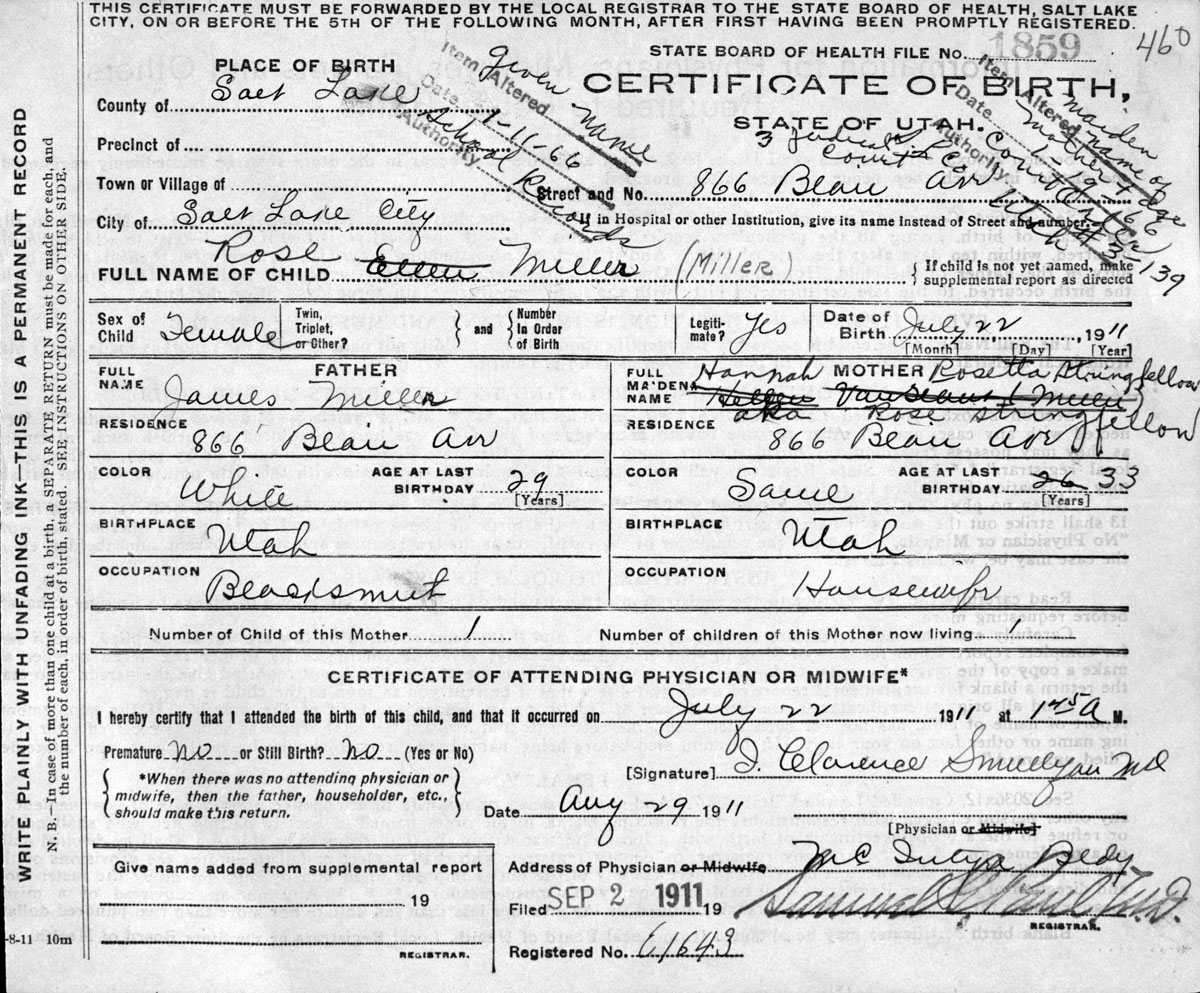 THIS CERTIFICATE MUST BE FORWARDED BY THE LOCAL REGISTRAR TO THE STATE BOARD OF HEALTH, SALT LAKE
CITY, ON OR BEFORE THE 5TH OF THE FOLLOWING MONTH, AFTER FIRST HAVING BEEN PROMPTLY REGISTERED.
WRITE PLAINLY WITH UNFADING INK—THIS IS A PERMANENT RECORD
N. B.—In case of more than one child at a birth, a SEPARATE RETURN must be made for each, and
the number of each, in order of birth, stated. SEE INSTRUCTIONS ON OTHER SIDE.
STATE BOARD OF HEALTH FILE No. 1859
460
PLACE OF BIRTH
CERTIFICATE OF BIRTH,
STATE OF UTAH.
Item Altered Given Name
Date 1-11-60
Authority School Records
Item Altered maiden name of mother & age
Date
Authority 3 Judicial Court
County of Salt Lake
Precinct of
Town or Village of
Street and No. 866 Beau Av
City of Salt Lake City
If in Hospital or other Institution, give its name Instead of Street and number.
Rose
FULL NAME OF CHILD Ellen Miller (Miller
If child is not yet named, make
supplemental report as directed
Sex of Child Female
Twin, Triplet, or Other?
and
Number In Order of Birth
Legitimate? Yes
Date of Birth July 22, 1911
[Month] [Day] [Year]
FATHER
FULL NAME James Miller
RESIDENCE 866 Beau Av
COLOR White
AGE AT LAST BIRTHDAY 29
[Years]
BIRTHPLACE Utah
OCCUPATION Blacksmith
MOTHER
FULL MAIDEN NAME Hannah Rosetta Stringfellow
aka Rose Stringfellow
RESIDENCE 866 Beau Av
COLOR Same
AGE AT LAST BIRTHDAY 26 33
[Years]
BIRTHPLACE Utah
OCCUPATION Housewife
Number of Child of this Mother 1
Number of children of this Mother now living 1
CERTIFICATE OF ATTENDING PHYSICIAN OR MIDWIFE*
I hereby certify that I attended the birth of this child, and that it occurred on July 22 1911 at 1 45 A M.
Premature No or Still Birth? No (Yes or No)
*When there was no attending physician or
midwife, then the father, householder, etc.,
should make this return.
[Signature] Clarence MD
Date Aug 29 1911
[Physician or Midwife]
Give name added from supplemental report
19
REGISTRAR.
Address of Physician or Midwife
Filed SEP 2 1911 19
Samuel
REGISTRAR.
Registered No.
-8-11 10m